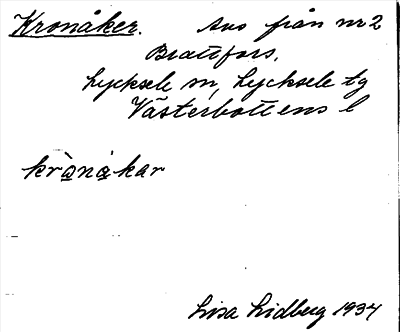 Kronåker. Avs från nr 2
Brattfors,
Lycksele sn, Lycksele tg
Västerbottens l
krònåkar
Lisa Lidberg 1934